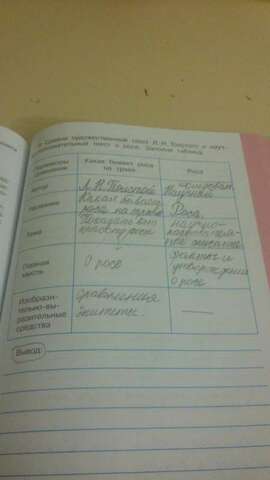 Сравни художественный текст Л.Н. Толстого и науч-
но-познавательный текст о росе. Заполни таблицу.
Параметры сравнения
Какая бывает роса на траве
Роса
Автор
Л. Н. Толстой
Научный
Название
Какая бывает
роса на траве
Роса
Тема
Показать его
красоту росы
научно-
Главная мысль
О росе
факты и
утверждения
о росе
Изобрази-
тельно-вы-
разительные
средства
сравнения
эпитеты.
—
Вывод: